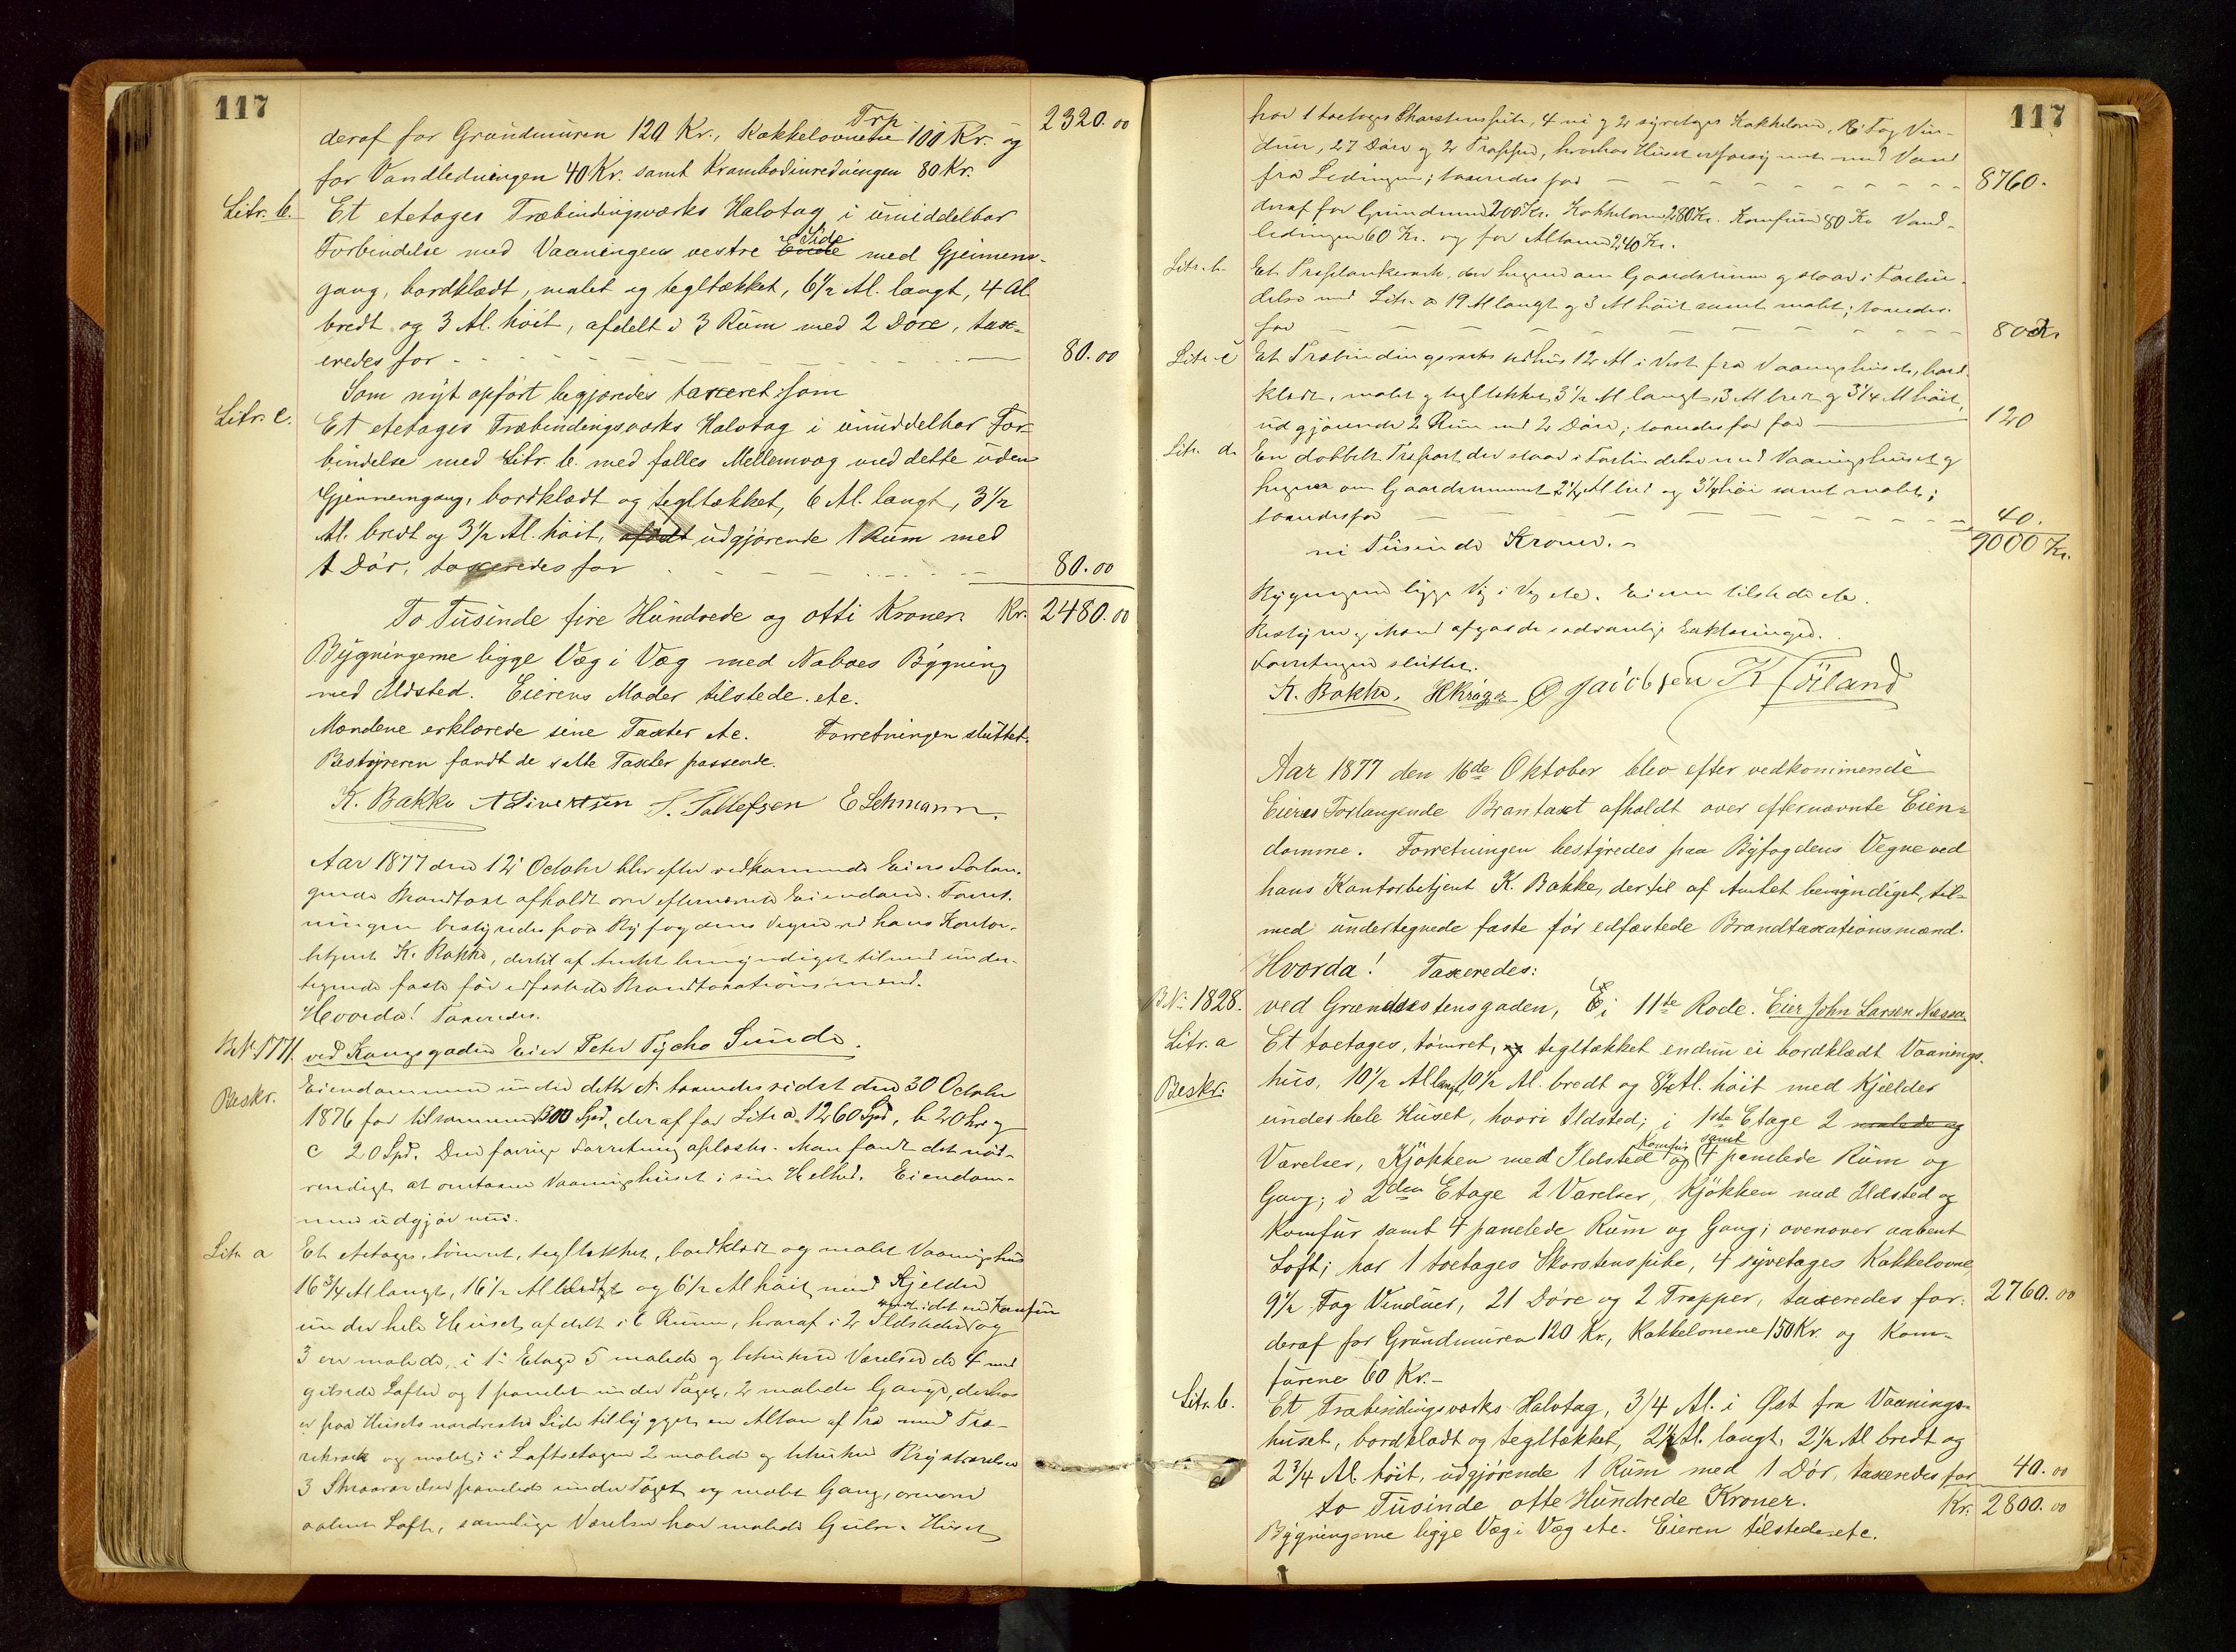 117
Trp
deraf for Grundmuren 120 Kr., Kakkelovnene 100 Kr. og
2320.00
for Vandledningen 40 Kr. samt Krambodinredningen 80 Kr.
Litr. b. Et etetages Træbindingsværks Halvtag i umiddelbar
Forbindelse med Vaaningens vestre Ende Side med Gjennem-
gang, bordklædt, malet og tegltækket, 6 1/2 Al. langt, 4 Al.
bredt og 3 Al. høit, afdelt i 3 Rum med 2 Døre, tax-
eredes for 80.00
Som nyt opført begjæredes taxeret som
Litr. c. Et etetages Træbindingsværks Halvtag i umiddelbar For-
bindelse med Litr. b. med fælles Mellemvæg med dette uden
Gjennemgang, bordklædt og tegltækket, 6 Al. langt, 3 1/2
Al. bredt og 3 1/2 Al. høit, udgjørende 1 Rum med
1 Dør, taxeredes for 80.00
To Tusinde fire Hundrede og otti Kroner Kr. 2480.00
Bygningerne ligge Væg i Væg med Naboes Bygning
med Ildsted. Eierens Moder tilstede. etc.
Mændene erklærede sine Taxter etc. Forretningen sluttet.
Bestyreren fandt de satte Taxter passende.
K. Bakke A Sivertsen T. Tollefsen E Lehmann.
Aar 1877 den 12 October blev efter vedkommende Eiers Forlan-
gende Brandtaxt afholdt over efternævnte Eiendom. Forret-
ningen bestyredes paa Byfogdens Vegne ved hans Kontor-
betjent K. Bakke, dertil af Amtet bemyndiget tilmed under-
tegnede faste før edfæstede Brandtaxationsmænd.
Hvorda! Taxeredes.
ved Kongsgaden Eier Peter Tycho Sunde.
Beskr. Eiendommen under dette No taxeredes sidst den 30 October
1876 for tilsammen 1300 Spd, deraf for Litr a 1260 Spd, b 20 Spd og
c 20 Spd. Den forrige Forretning oplæstes. Man fandt det nød-
vendigt at omtaxere Vaaningshuset i sin Helhed. Eiendom-
men udgjør nu.
Litr a Et etetages tømret, tegltækket, bordklædt og malet Vaaningshus
16 3/4 Al langt, 16 1/2 Al bredt og 6 1/2 Al høit med Kjelder
under hele Huset, afdelt i 6 Rum, hvoraf i 2 Ildsteder og
3 ere malede, i 1ste Etage 5 malede og betrukne Værelser de 4 med
gibsede Lofter og 1 panelet under Taget, 2 malede Gange, derhos
er paa Husets nordvestre Side tilbygget en Altan af Træ med Træ-
rekværk og malet; i Loftsetagen 2 malede og betrukne Kvistværelser
3 Skraaværelser panelede under Taget og malet Gang, ovenover
aabent Loft, samtlige Værelser har malede Gulve. Huset
117
har 1 toetages Skorstenspibe, 4 ni og 2 syvetages Kakkelovne, Fag Vin-
duer, 27 Døre og 2 Trapper, hvorhos Huset er forsynet med Vand
fra Ledningen; taxeredes for 8760.
deraf for Grundmuren 200 Kr. Kakkelovne 280 Kr. Komfuren 80 Kr Vand-
ledningen 60 Kr. og for Altanen 240 Kr.
Litr. b. Et Træplankeværk, der hegner om Gaardsrummet og staar i Forbin-
delse med Litr. a 19 Al langt og 3 Al høit samt malet; taxeredes
for 80 Kr
Litr c Et Træbindingsværks udhus 12 Al i Vest fra Vaaningshuset, bord-
klædt, malet og tegltækket, 3 1/2 Al langt, 3 Al bredt og 3 1/4 Al høit,
udgjørende 2 Rum med 2 Døre; taxeredes for 120
Litr. d. En dobbelt Træport der staar i Forbindelse med Vaaningshuset og
hegner om Gaardsrummet 2 1/2 Al bred og 3 1/4 høi samt malet;
taxeredes for 40.
ni Tusinde Kroner. 9000 Kr.
Bygningerne ligge Væg i Væg etc. Eieren tilstede etc.
Bestyrer og Mænd afgav de sædvanlige Erklæringer.
Forretningen sluttet.
K. Bakke. H Krøger O Jacobsen K Föiland
Aar 1877 den 16de Oktober blev efter vedkommende
Eieres Forlangende Brantaxt afholdt over efternævnte Eien-
domme. Forretningen bestyredes paa Byfogdens Vegne ved
hans Kontorbetjent K. Bakke, dertil af Amtet bemyndiget, til-
med undertegnede faste før edfæstede Brandtaxationsmænd.
Hvorda! Taxeredes:
B No 1828. ved Grændsestensgaden, i 11te Rode. Eier John Larsen Næssa.
Litr. a Et toetages, tømret, og tegltækket endnu ei bordklædt Vaanings-
Beskr. hus, 10 1/2 Al langt, 10 1/2 Al. bredt og 8 1/2 Al. høit med Kjelder
under hele Huset, hvori Ildsted; i 1ste Etage 2 malede og
Værelser, Kjøkken med Ildsted og Komfur samt 4 panelede Rum og
Gang; i 2den Etage 2 Værelser, Kjøkken med Ildsted og
Komfur samt 4 panelede Rum og Gang; ovenover aabent
Loft; har 1 toetages Skorstenspibe, 4 syvetages Kakkelovne
9 1/2 Fag Vinduer, 21 Døre og 2 Trapper, taxeredes for: 2760.00
deraf for Grundmuren 120 Kr., Kakkelovnene 150 Kr. og Kom-
furene 60 Kr.-
Litr. b. Et Træbindingsværks Halvtag, 3/4 Al. i Øst fra Vaanings-
huset, bordklædt og tegltækket, 2 1/2 Al. langt, 2 1/2 Al bredt og
2 3/4 Al. høit, udgjørende 1 Rum med 1 Dør, taxeredes for 40.00
to Tusinde otte Hundrede Kroner. Kr. 2800.00
Bygningerne ligge Væg i Væg etc. Eieren tilstede etc.